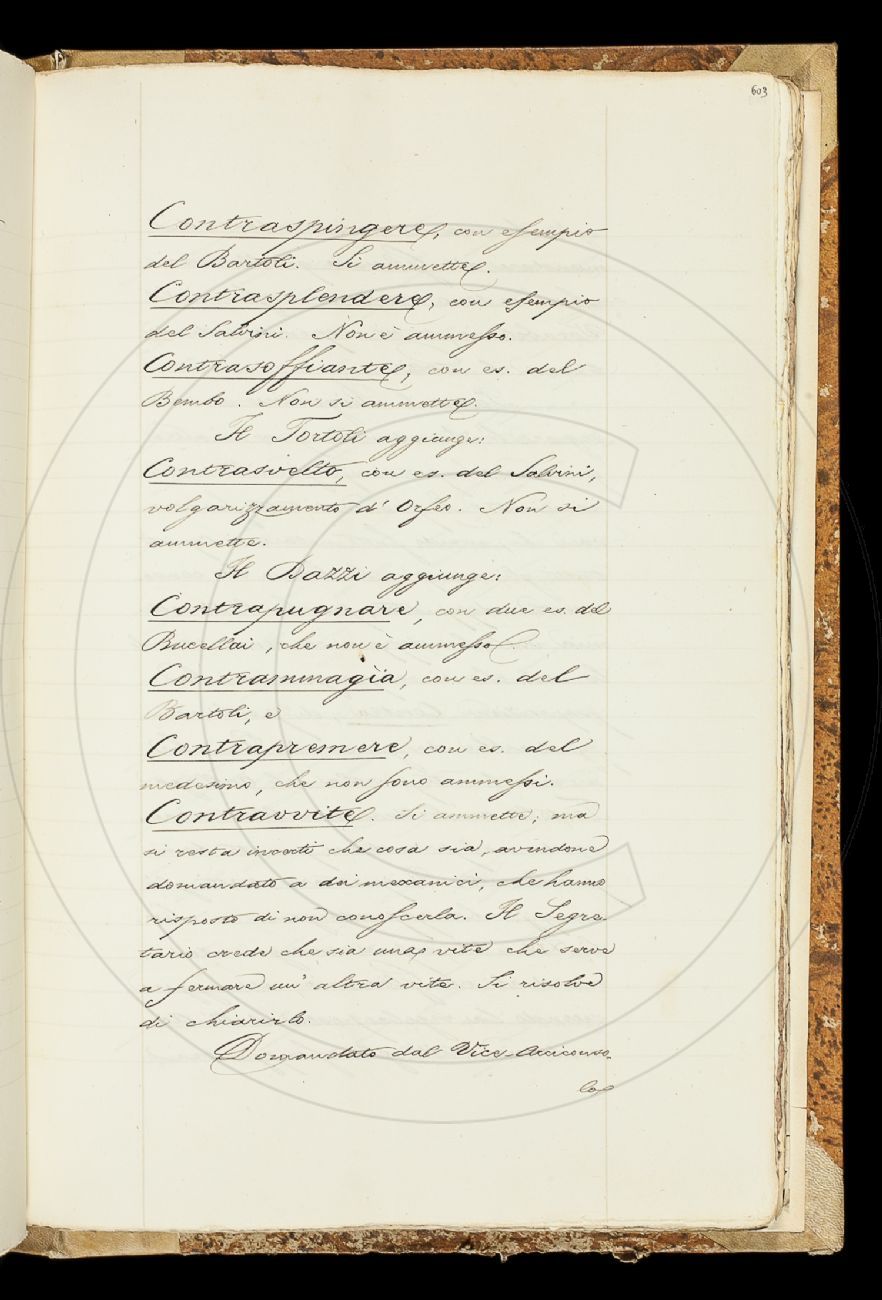 603
Contraspingere, con esempio
del Bartoli. Si ammette.
Contrasplendere, con esempio
del Salvini. Non è ammesso.
Contrasoffiante, con es. del
Bembo. Non si ammette.
Il Tortoli aggiunge:
Contrasvelto, con es. del Salvini,
volgarizzamento d' Orfeo. Non si
ammette.
Il Bazzi aggiunge:
Contrapugnare, con due es. del
Rucellai, che non è ammesso.
Contrammagìa, con es. del
Bartoli, e
Contrapremere, con es. del
medesimo, che non sono ammessi.
Contravvite. Si ammette; ma
si resta incerti che cosa sia, avendone
domandato a dei meccanici, che hanno
risposto di non conoscerla. Il Segre-
tario crede che sia una vite che serve
a fermare un' altra vite. Si risolve
di chiarirlo.
Domandato dal Vice-Arciconso-
lo